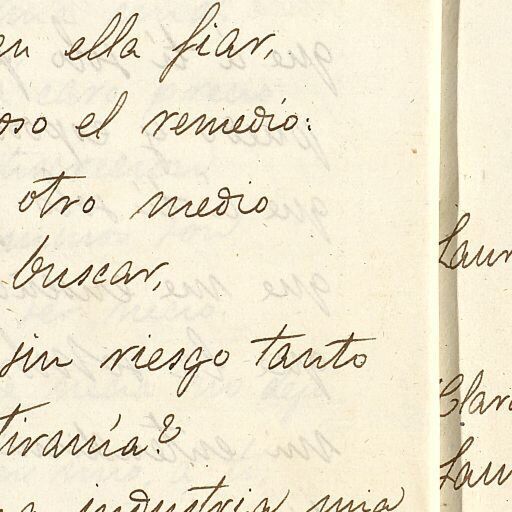 en ella fiar,
oso el remedio:
otro medio
buscar,
sin riesgo tanto
tiranía?
industria mia
Laur
Clar
Laur